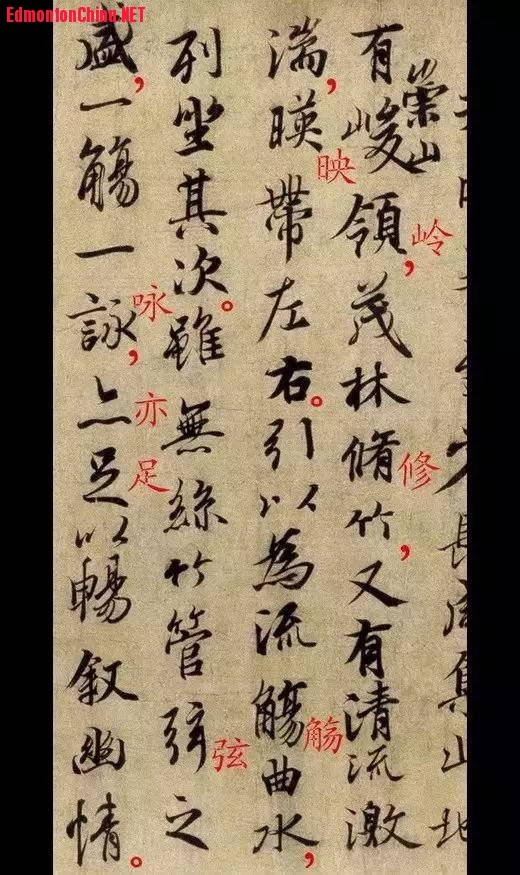 EdmontonChina.NET
少長咸集此地
有崇山峻領，茂林脩竹，又有清流激
岭
修
湍，暎帶左右。引以為流觴曲水，
映
觞
列坐其次。雖無絲竹管弦之
弦
盛，一觴一詠，亦足以暢叙幽情。
咏
亦
足